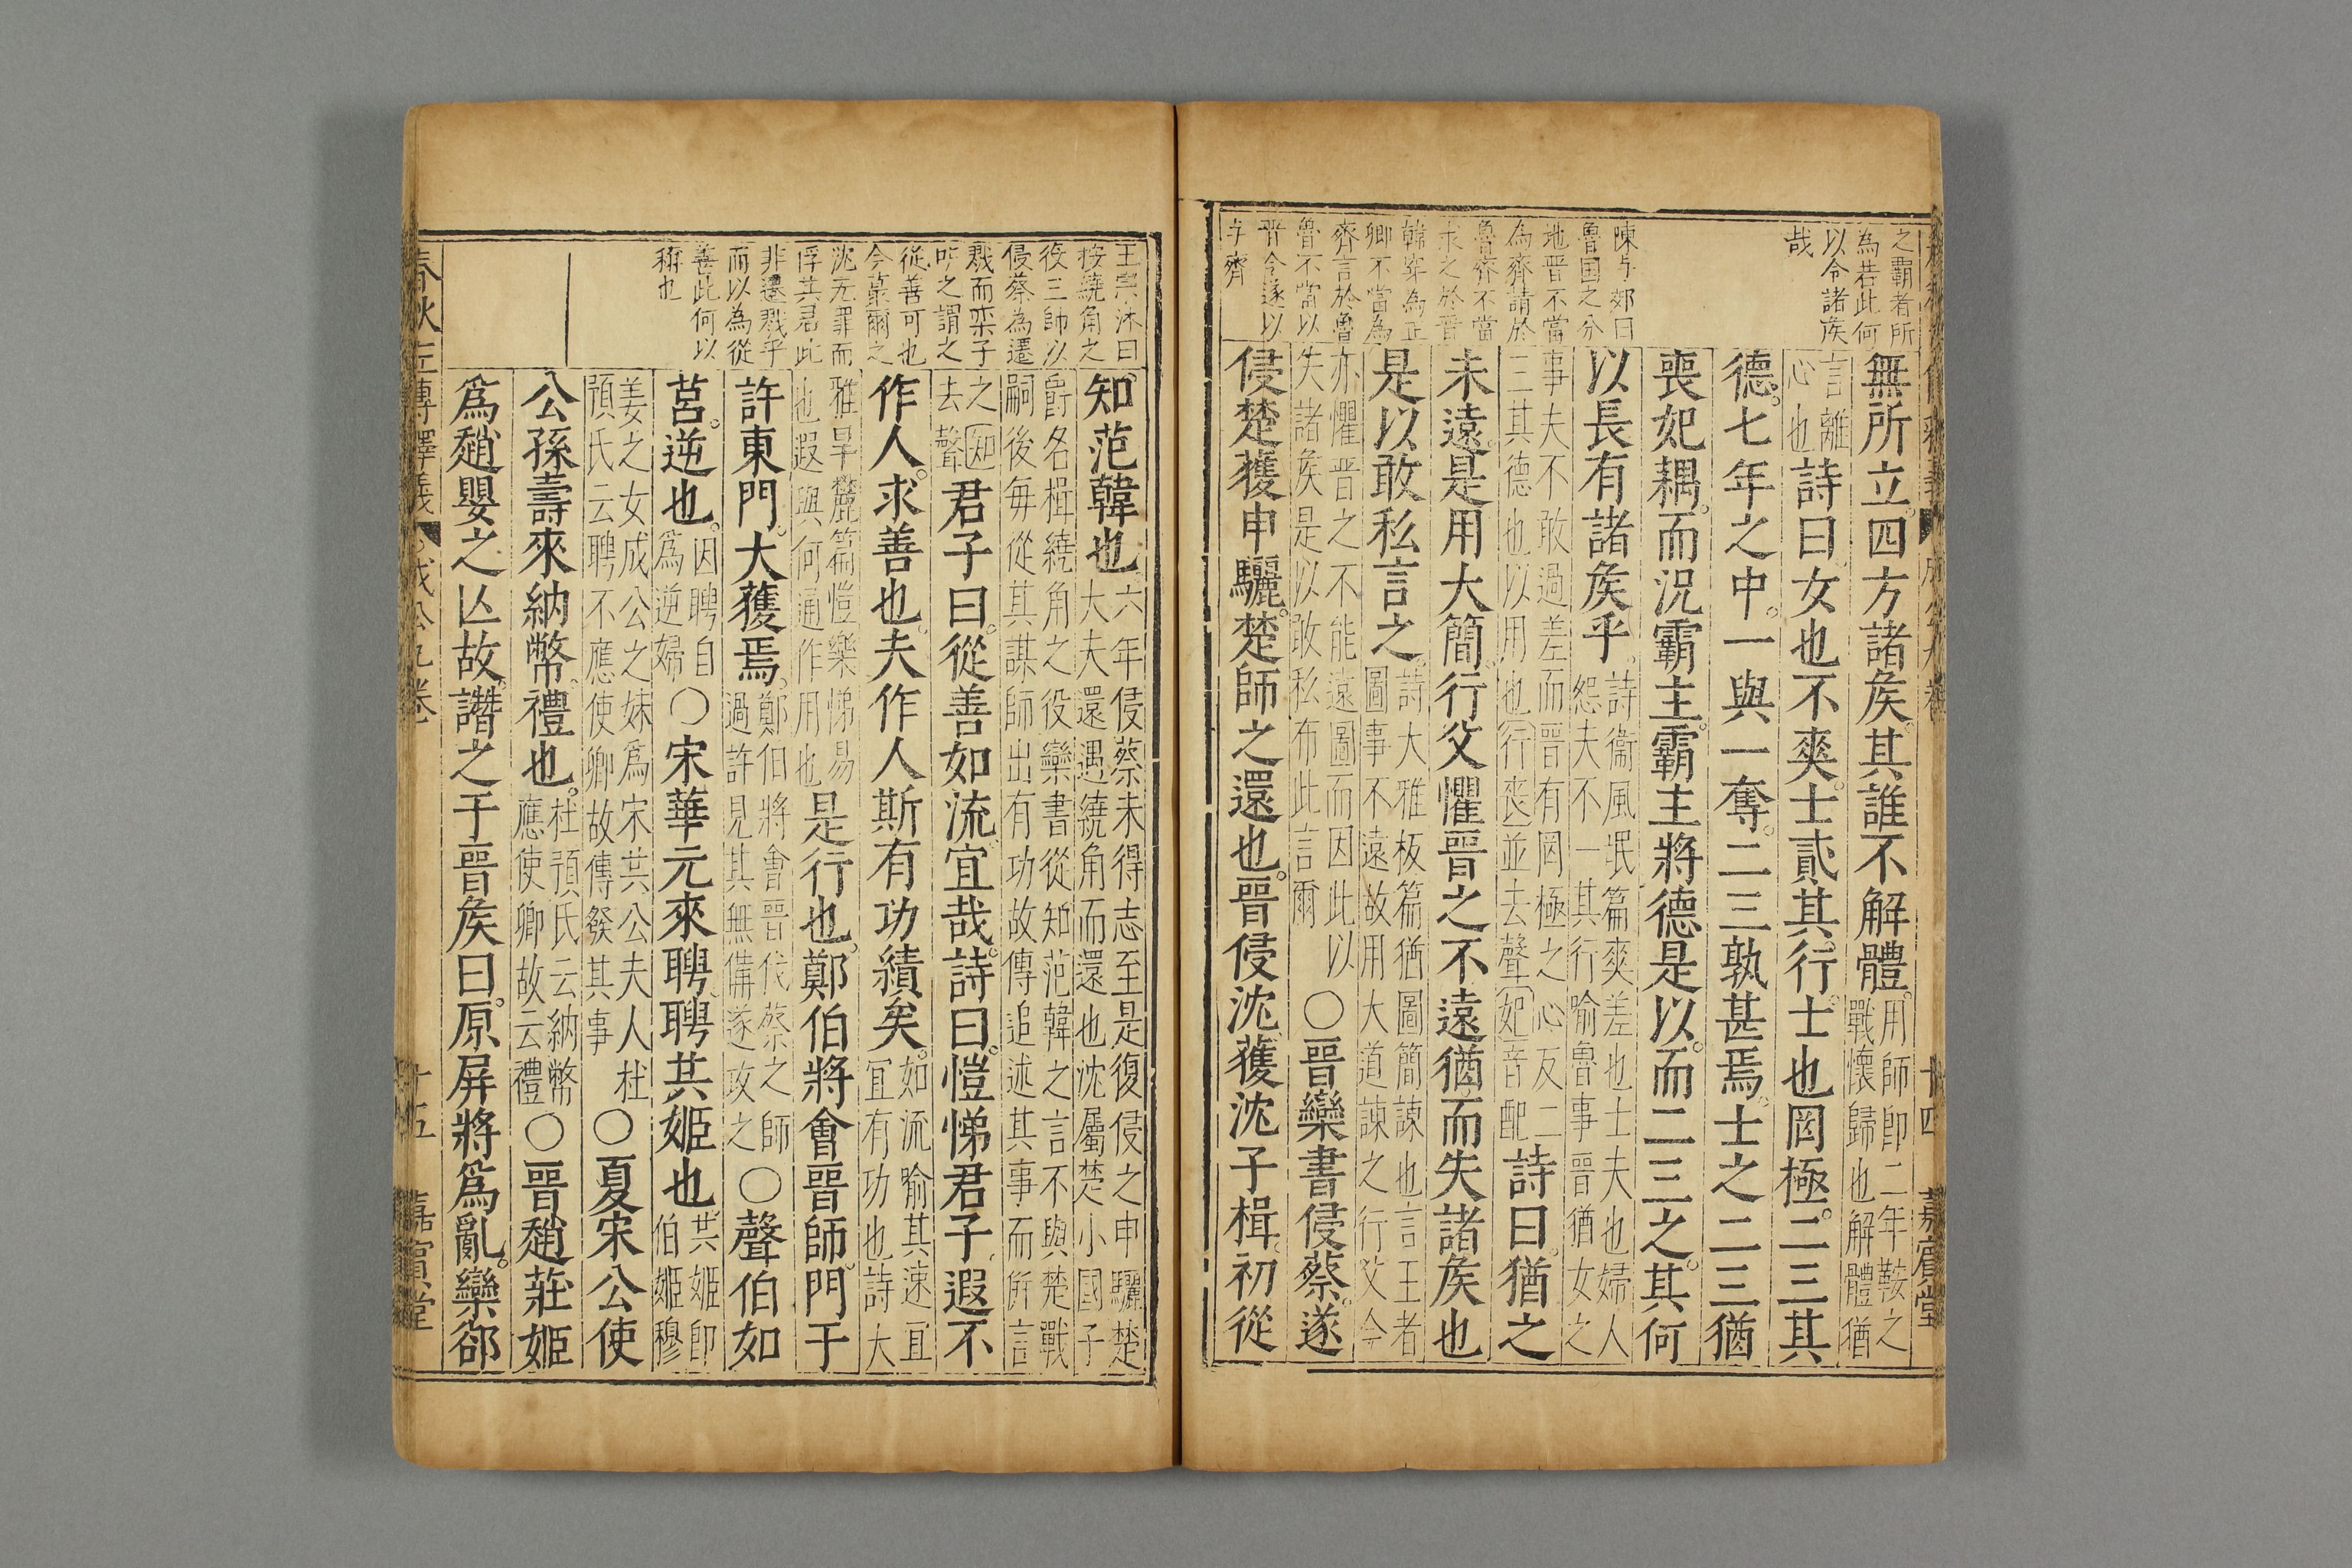 之霸者所
為若此何
以令諸矦
哉
陳与郊曰
魯国之分
地晋不當
為齊請於
魯齊不當
求之於晋
韓穿為正
卿不當為
齊言於魯
魯不當以
晋令遂以
与齊
無所立四方諸矦其誰不解體用師即二年鞍之
戰懷歸也解體猶
言離
心也詩曰女也不爽士貳其行士也罔極二三其
德七年之中一與一奪二三孰甚焉士之二三猶
喪妃耦而況霸主霸主將德是以而二三之其何
以長有諸矦乎詩衞風氓篇爽差也士夫也婦人
怨夫不一其行喻魯事晋猶女之
事夫不敢過差而晋有罔極之心反二
三其德也以用也行喪並去聲妃音配詩曰猶之
未遠是用大簡行父懼晋之不遠猶而失諸矦也
是以敢私言之詩大雅板篇猶圖簡諫也言王者
圖事不遠故用大道諫之行父今
亦懼晋之不能遠圖而因此以
失諸矦是以敢私布此言爾〇晋欒書侵蔡遂
侵楚獲申驪楚師之還也晋侵沈獲沈子楫初從
十四
嘉賓堂
王宗沐曰
按繞角之
役三帥以
侵蔡為遷
戮而欒子
听之謂之
從善可也
今蕞爾之
沈无罪而
俘其君此
非遷戮乎
而以為從
善此何以
稱也
知范韓也六年侵蔡未得志至是復侵之申驪楚
大夫還遇繞角而還也沈屬楚小國子
爵名楫繞角之役欒書從知范韓之言不與楚戰
嗣後每從其謀師出有功故傳追述其事而併言
之知
去聲君子曰從善如流宜哉詩曰愷悌君子遐不
作人求善也夫作人斯有功績矣如流喻其速宜
宜有功也詩大
雅旱麓篇愷樂悌易
也遐與何通作用也是行也鄭伯將會晋師門于
許東門大獲焉鄭伯將會晋伐蔡之師
過許見其無備遂攻之〇聲伯如
莒逆也因聘自
為逆婦〇宋華元來聘聘共姬也共姬即
伯姬穆
姜之女成公之妹為宋共公夫人杜
預氏云聘不應使卿故傳發其事〇夏宋公使
公孫壽來納幣禮也杜預氏云納幣
應使卿故云禮〇晋趙莊姬
為趙嬰之亾故譖之于晋矦曰原屏將為亂欒郤
春秋左傳釋義
成公九卷
十五
嘉賓堂